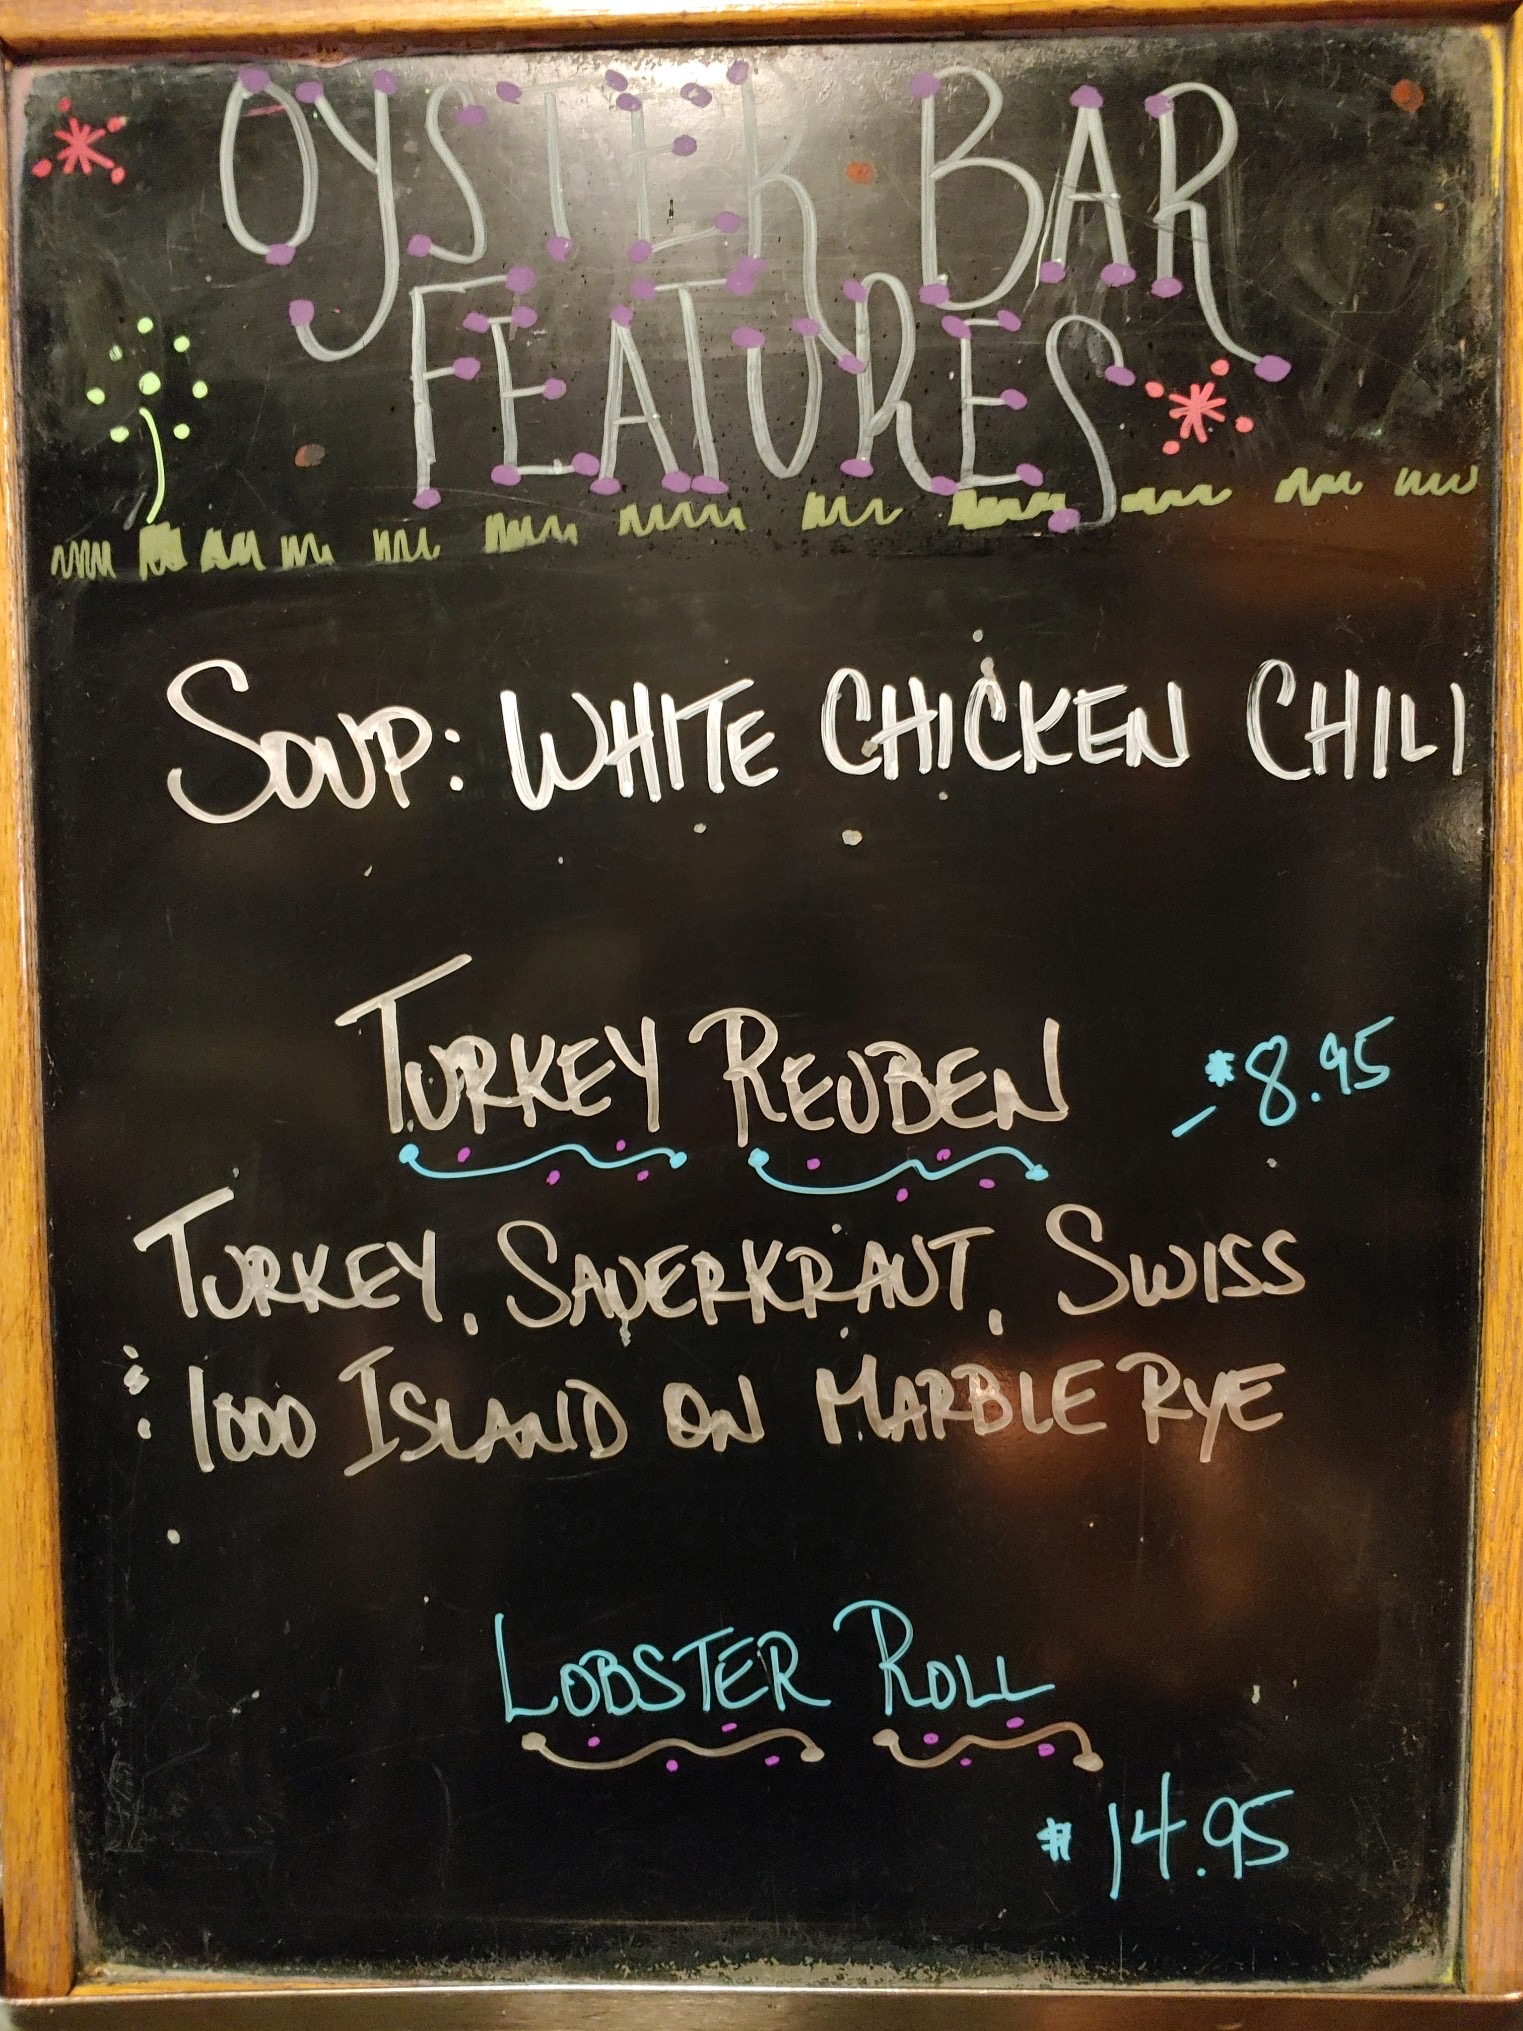 OYSTER BAR
FEATURES
SOUP: WHITE CHICKEN CHILI
TURKEY REUBEN - $8.95
TURKEY, SAUERKRAUT, SWISS
& 1000 ISLAND ON MARBLE RYE
LOBSTER ROLL
$14.95